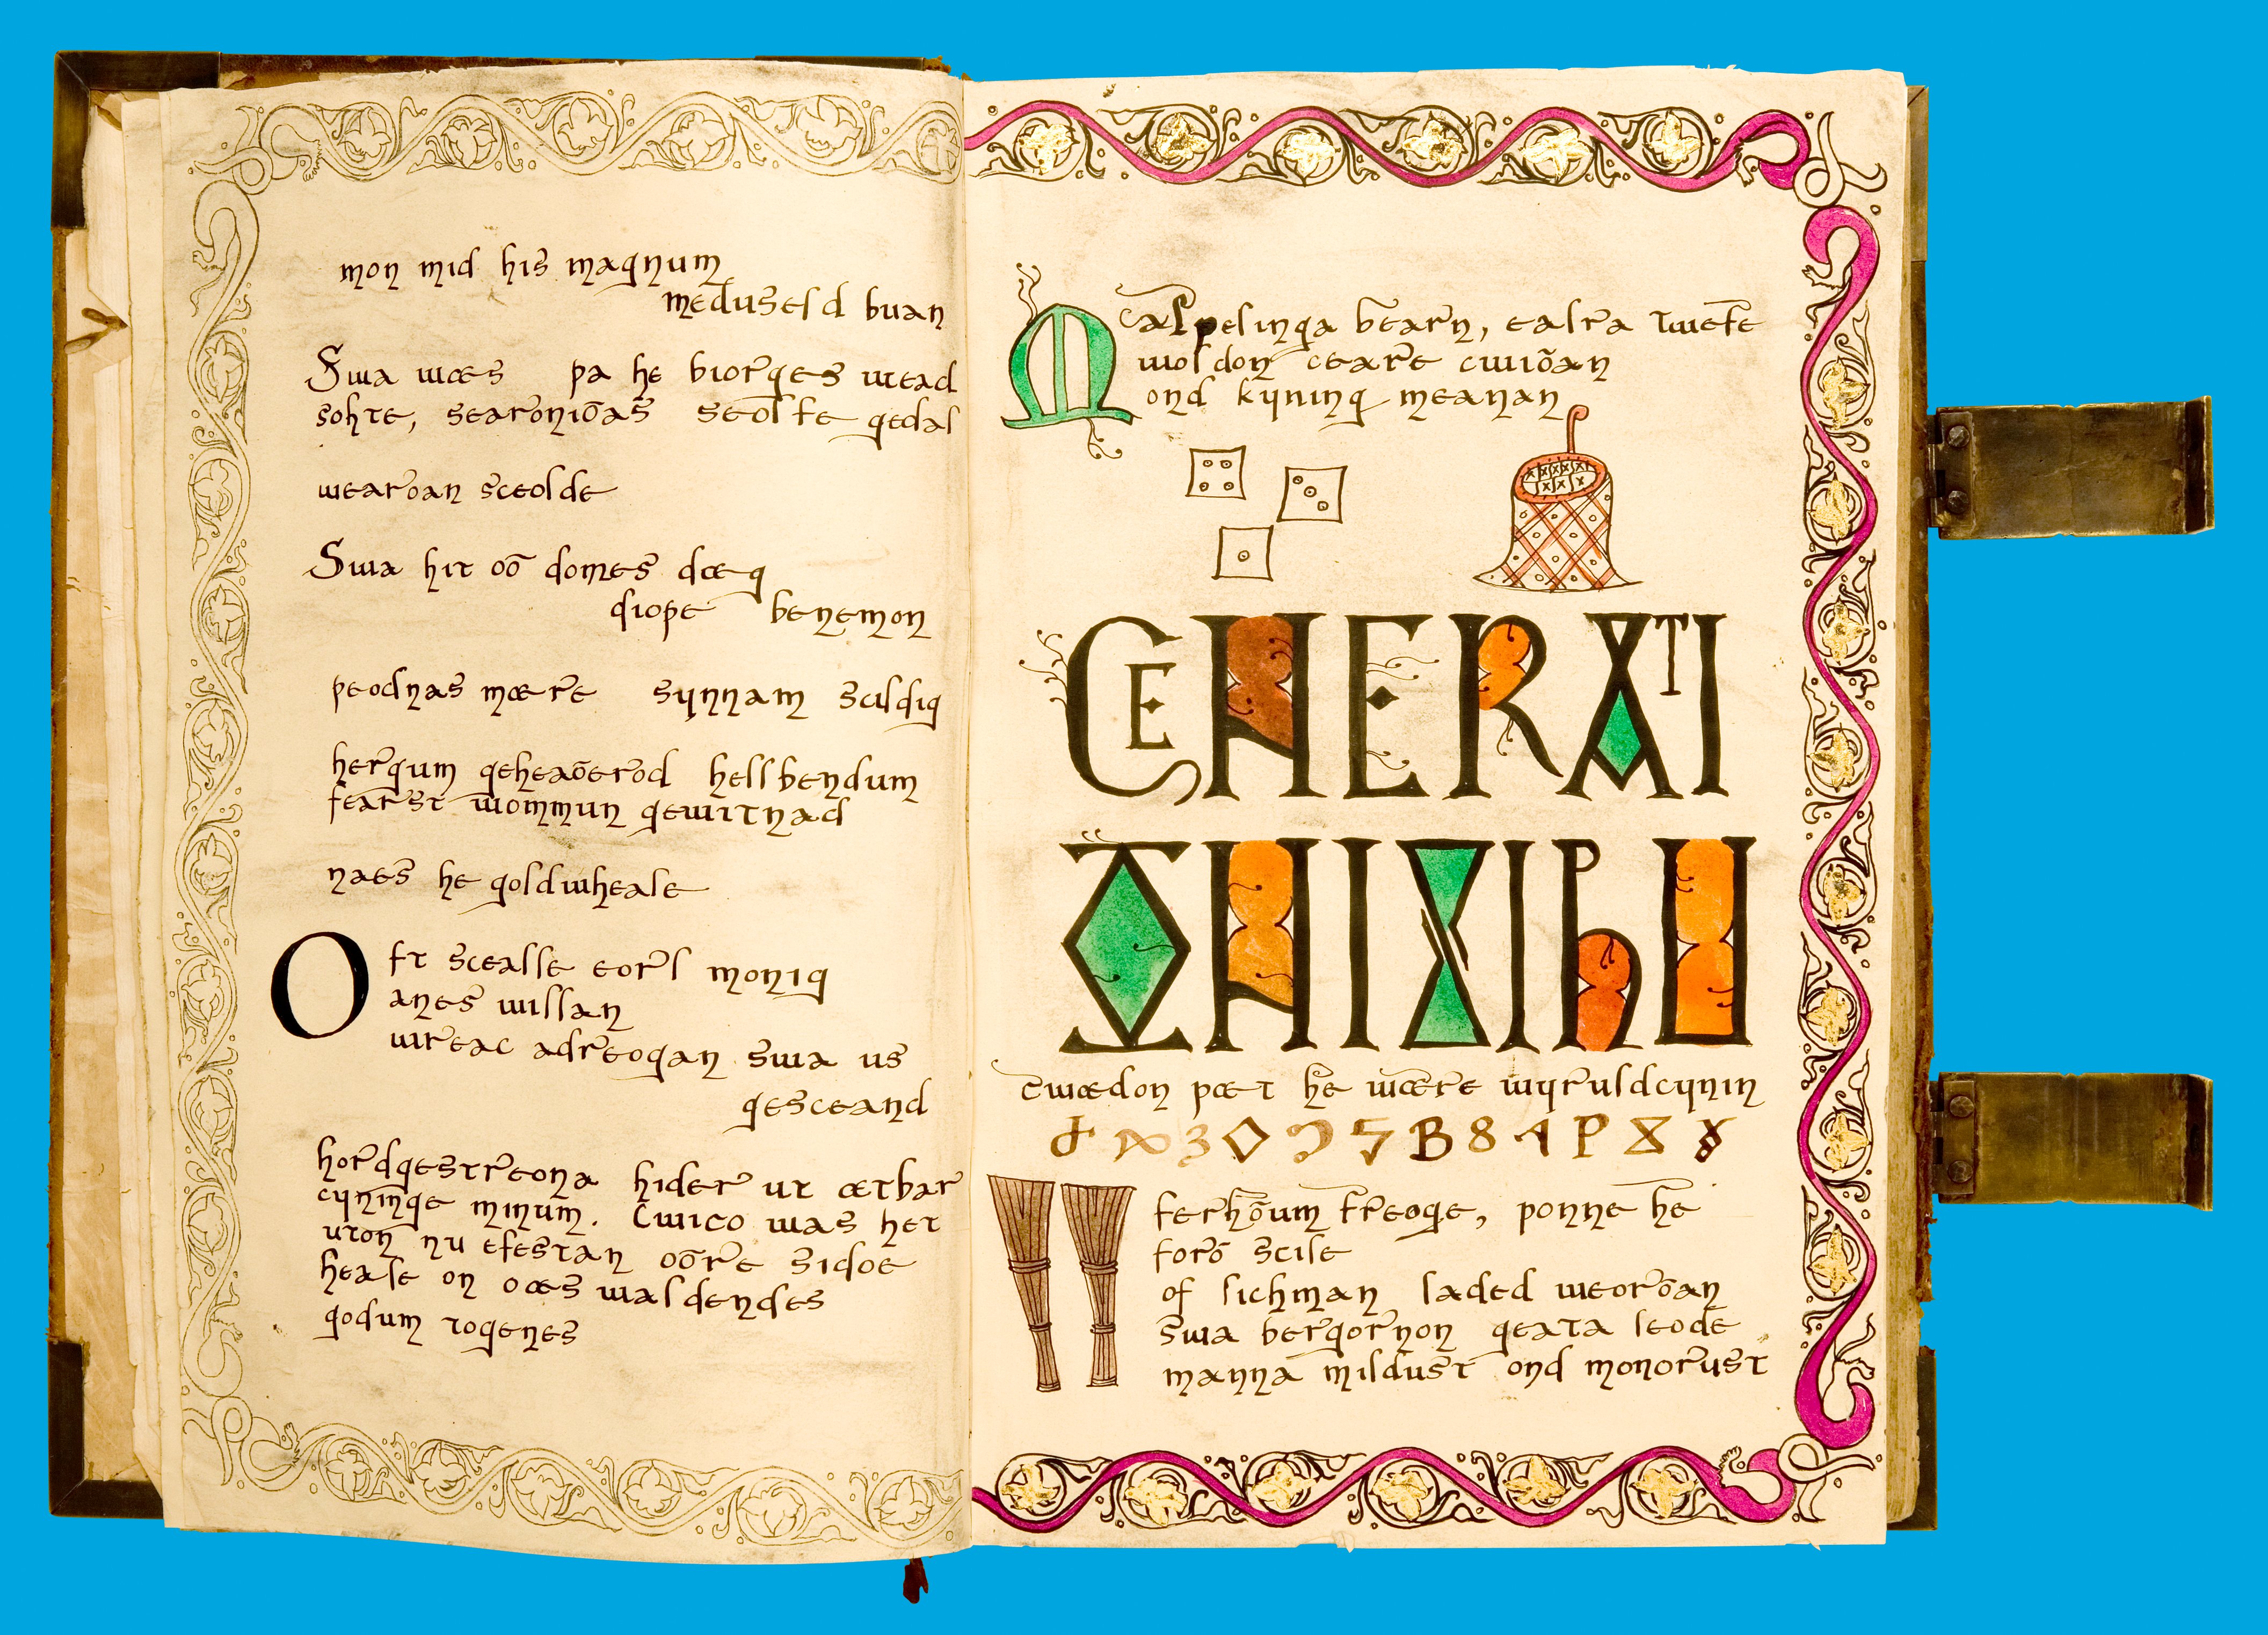 mon mid his magnum
meduseld buan
Swa wæs þa he biorges weard
sohte, searoniðas seolfe gedal
wearðan sceolde
Swa hit oð domes dæg
diope benemon
þeodnas mære synnam scildig
hergum geheaðerod hellbendum
fearst wommun gewitnad
naes he goldwheale
Oft scealle eorl monig
anes willan
wreac adreogan swa us
gesceand
hordgestreona hider ut ætbær
cyninge minum. Cwico was het
uton nu efestan oðre sidoe
heale on oæs waldendes
godum togenes
æþelinga bearn, ealra twefe
woldon ceare cwiðan
ond kyning meanan
CE HERATI
cwædon þæt he wære wyruldcynin
ferhðum freoge, þonne he
forð scile
of lichman laded weorðan
swa bergornon geata leode
manna mildust ond monðrust